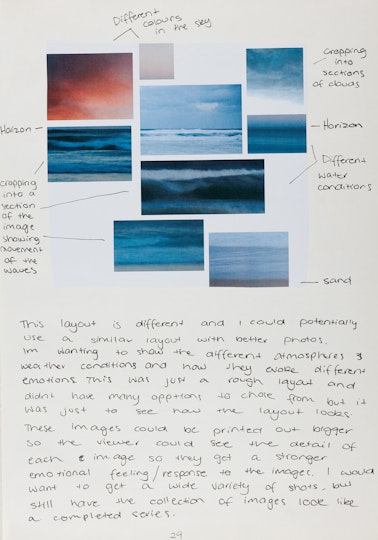 Different
colours
in the sky
cropping
into
sections
of clouds
Horizon
Horizon
Different
water
conditions
cropping
into a
section
of the
image
showing
movement
of the
waves
sand
This layout is different and I could potentially
use a similar layout with better photos.
Im wanting to show the different atmosphires &
weather conditions and how they evoke different
emotions. This was just a rough layout and
didnt have many opptions to chose from but it
was just to see how the layout looks.
These images could be printed out bigger
so the viewer could see the detail of
each image so they get a stronger
emotional feeling/response to the images. I would
want to get a wide variety of shots, but
still have the collection of images look like
a completed series.
29